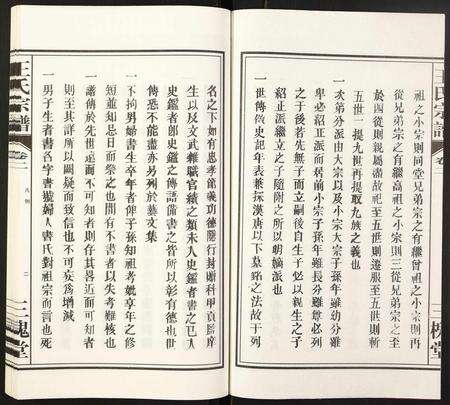 王氏宗譜
卷一
祖之小宗則同堂兄弟宗之有繼曾祖之小宗則再
從兄弟宗之有繼高祖之小宗則三從兄弟宗之至
於四從則親屬盡故祀至五世則遷服至五世則斬
五世一提九世再提取九族之義也
一次第分派由大宗以及小宗大宗子孫年雖幼分雖
卑必紹正派而居前小宗子孫年雖長分雖尊必列
之于後若先無子而立嗣後自生子必以親生之子
紹正派繼立之子隨附之所以明嫡派也
一世傳做史記年表兼採漢唐以下墓銘之法故于列
三槐堂
名之下如有忠孝節義功德隱行封贈科甲貢監庠
生以及文武雜職官績之類未入史鑑者書之已入
史鑑者即史鑑之傳語備書之皆所以彰有德也世
傳恐不能盡亦另列於藝文集
一不拘男婦書生卒年者俾子孫知祖考妣享年之修
短並知忌日而祭之也間有不書者以失考難核也
一譜傳於先世遠而不可知者則存其畧近而可知者
則至其詳所以闕疑而致信也不可妄為增減
一男子生者書名字書號婦人書氏對祖宗而言也死
王氏宗譜
卷一
凡例
二
三槐堂